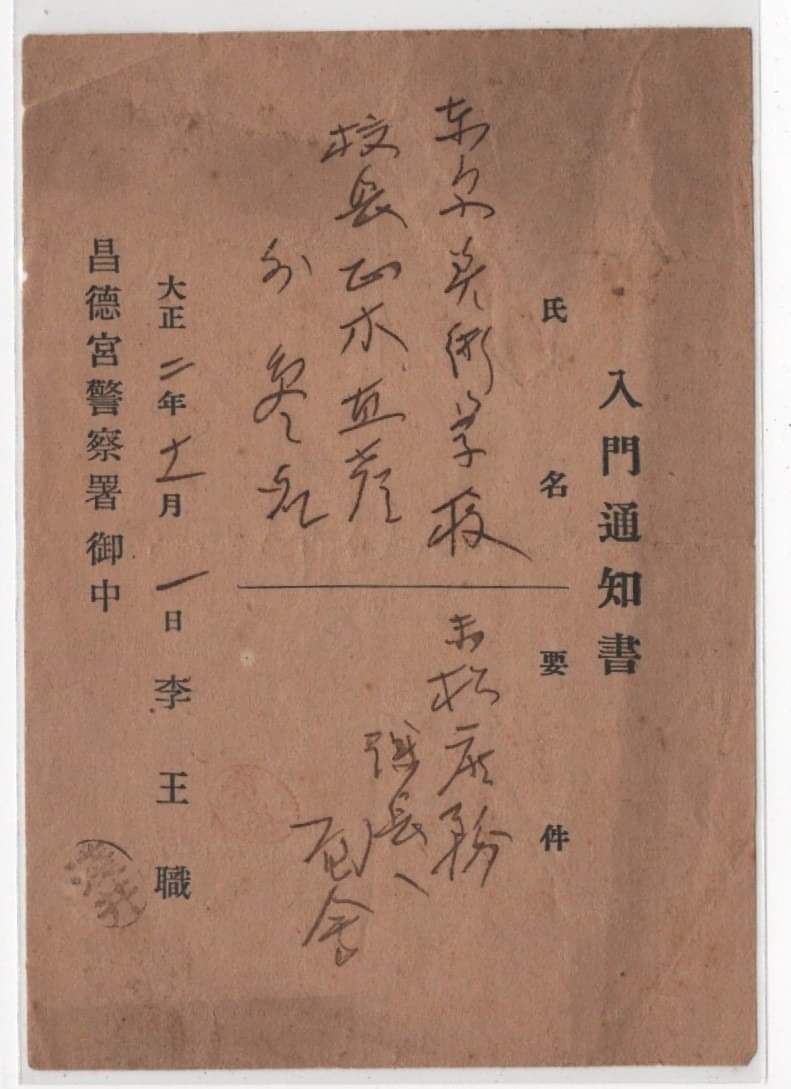 入門通知書
氏名
要件
東京美術学校
校長正木直彦
外 参名
赤松庶務
課長ヘ
面会
大正二年十一月一日 李王職
昌德宮警察署御中